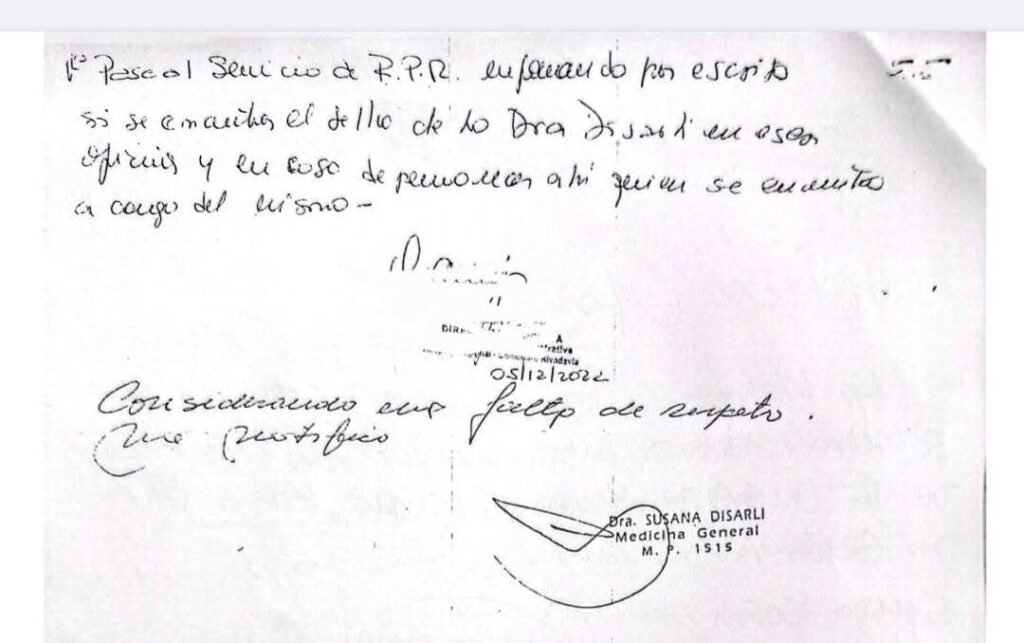 Pase al Servicio de R.P.R. informando por escrito
si se encuentra el sello de la Dra Disarli en esas
oficinas y en caso de permanecer ahi quien se encuentra
a cargo del mismo -
A
rativa
ivadavia
05/12/2022
Considerando una falta de respeto.
Me notifico
Dra. SUSANA DISARLI
Medicina General
M. P. 1515